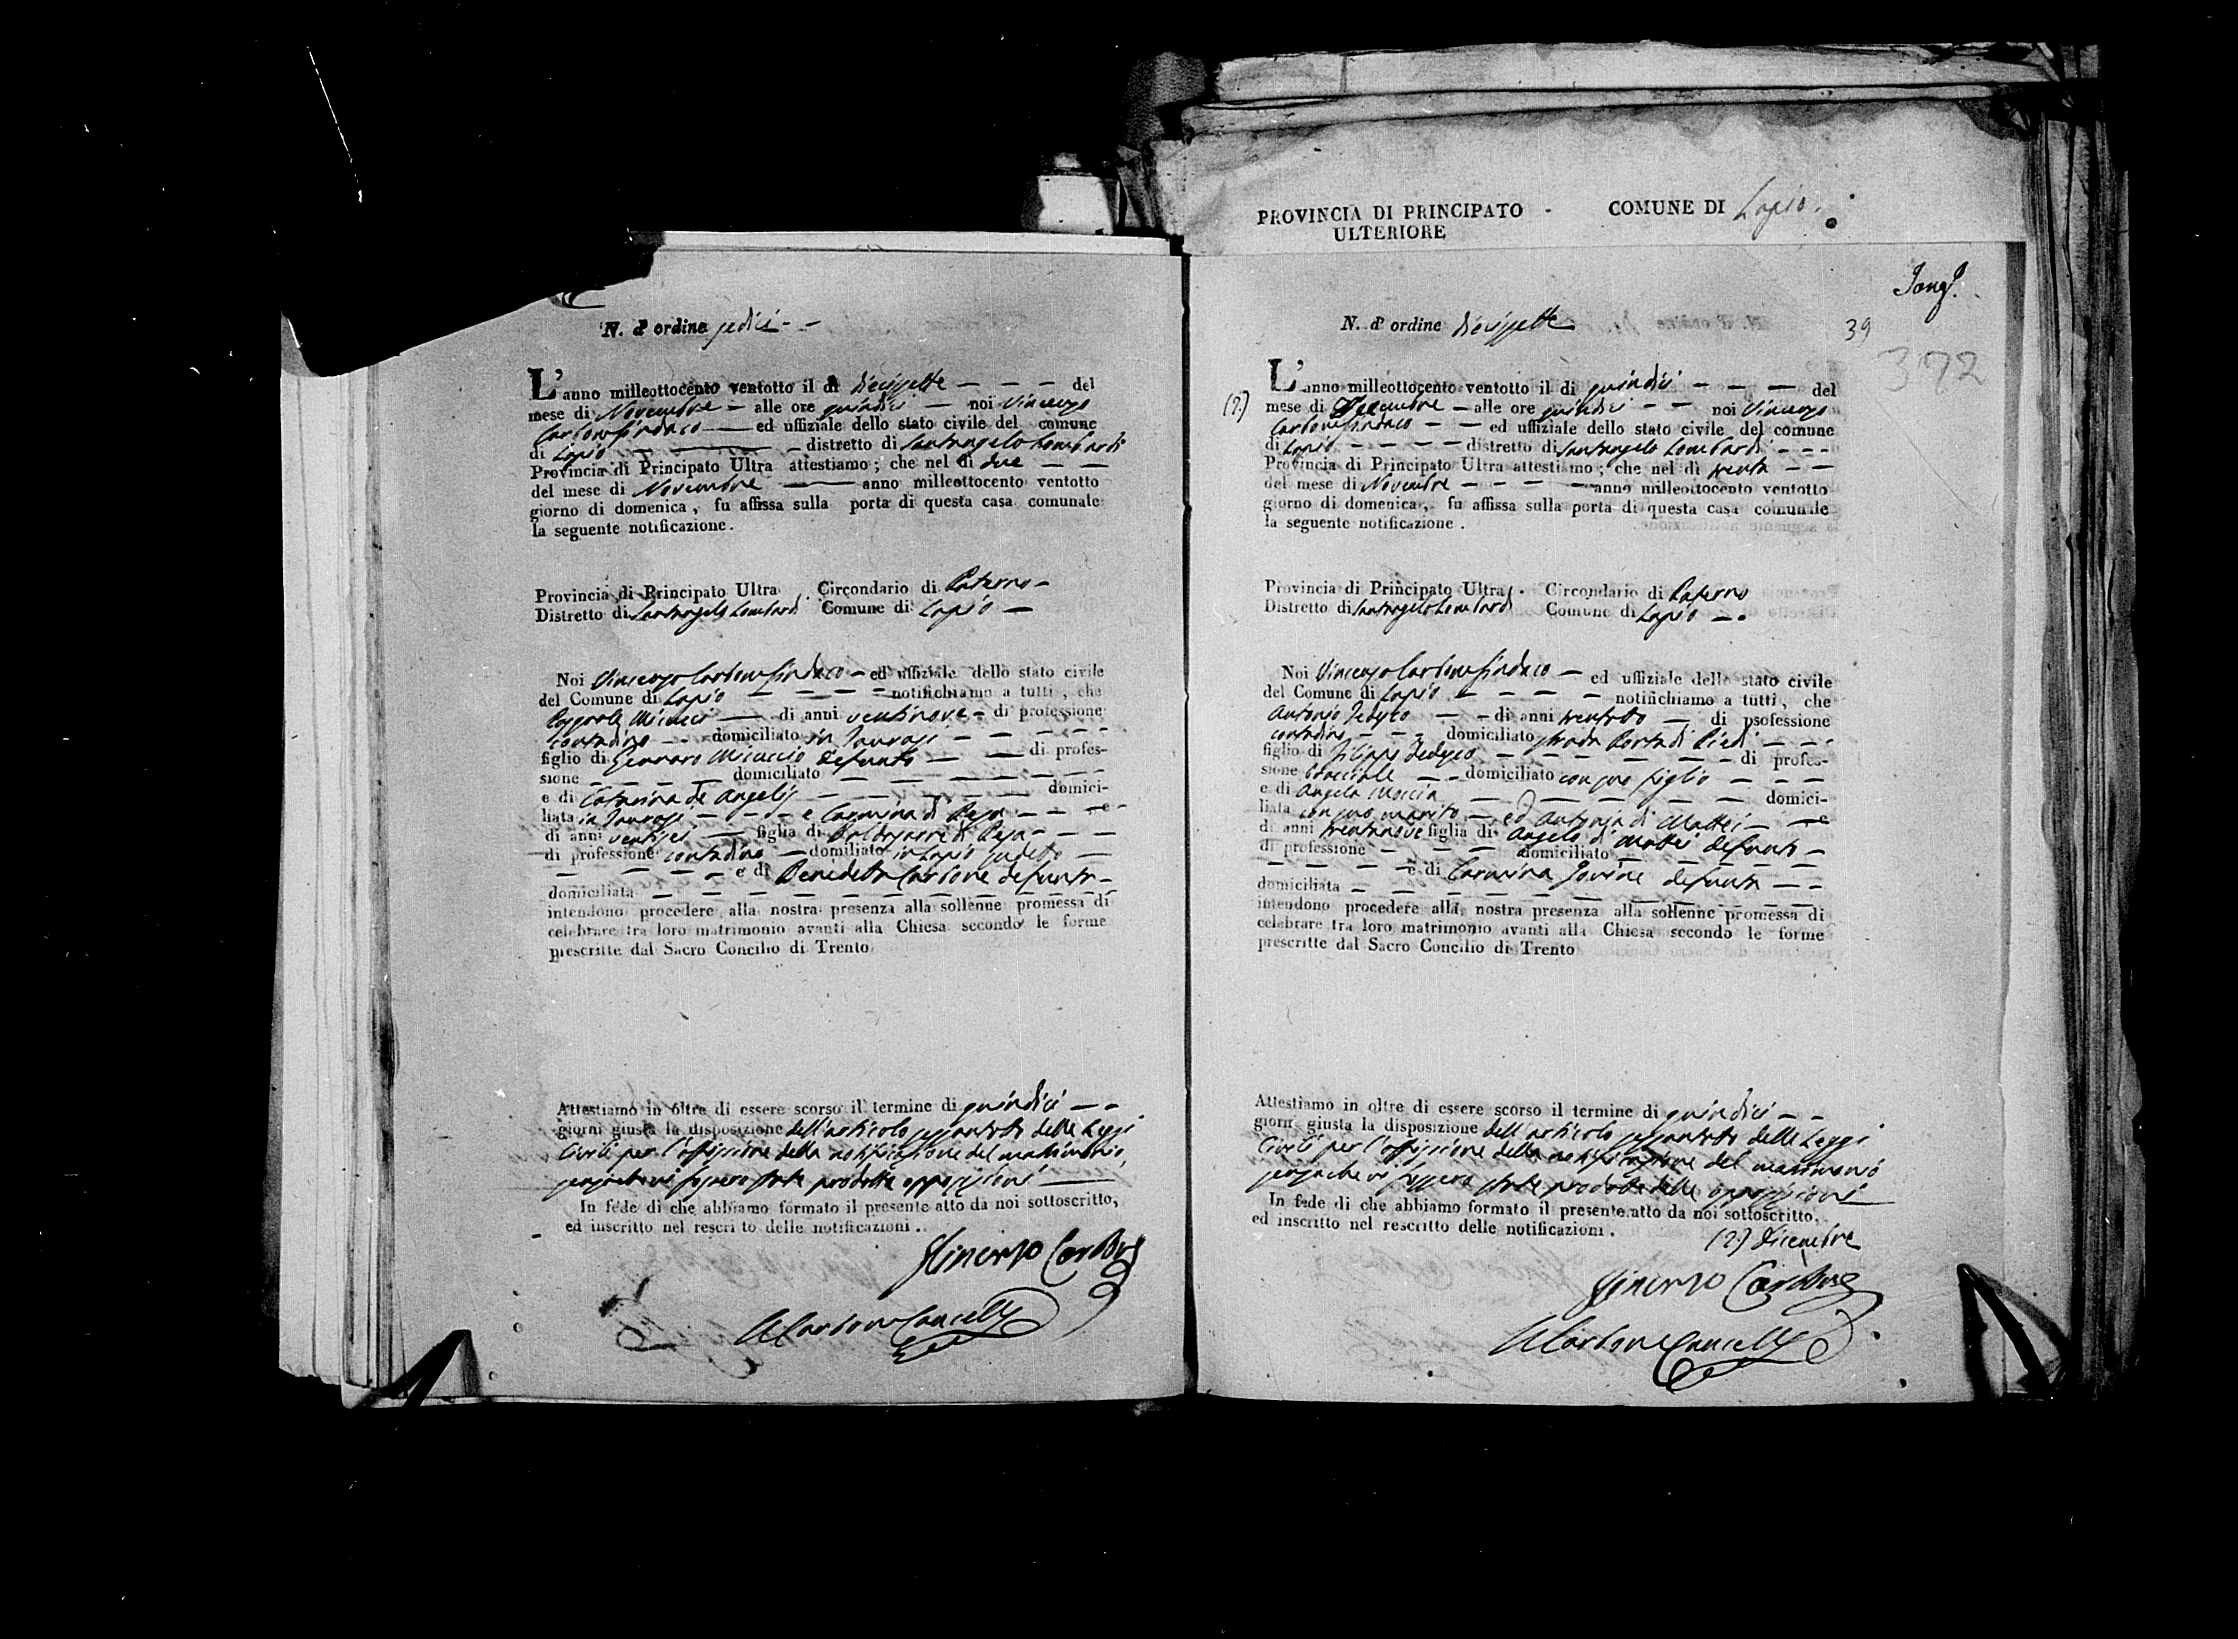 N. d'ordine sedici - -
L'anno milleottocento ventotto il dì diecissette — — — del
mese di Novembre — alle ore quindici — noi Vincenzo
Carbone Sindaco — ed uffiziale dello stato civile del comune
di Lapio — — distretto di Santangelo Lombardi
Provincia di Principato Ultra attestiamo; che nel dì due — —
del mese di Novembre — anno milleottocento ventotto
giorno di domenica, fu affissa sulla porta di questa casa comunale
la seguente notificazione.
Provincia di Principato Ultra. Circondario di Paterno -
Distretto di Santangelo Lombardi Comune di Lapio —
Noi Vincenzo Carbone Sindaco - ed uffiziale dello stato civile
del Comune di Lapio — — — — notifichiamo a tutti, che
Micucci — di anni ventinove - di professione
contadino - - domiciliato in Taurasi — — — — —
figlio di Gennaro Micuccio defunto — — di profes-
sione — — — — domiciliato — — — — — —
e di Catarina de Angelis — — — — — — domici-
liata in Taurasi — — — e Carmina di — — e
di anni ventisei — figlia di Baldassarre di — —
di professione contadino — domiliato in Lapio sudetto —
— — — — e di Benedetta Carbone defunta —
domiciliata — — — — — — — — — —
intendono procedere alla nostra presenza alla sollenne promessa di
celebrare tra loro matrimonio avanti alla Chiesa secondo le forme
prescritte dal Sacro Concilio di Trento
Attestiamo in oltre di essere scorso il termine di quindici — -
giorni giusta la disposizione dell'articolo sessantotto delle Leggi
Civili per l'affissione della notificazione del matrimonio,
senzache vi fossero state prodotte opposizioni —
In fede di che abbiamo formato il presente atto da noi sottoscritto,
ed inscritto nel rescri to delle notificazioni.
Vincenzo Carbone
Carbone Cancell.
PROVINCIA DI PRINCIPATO - COMUNE DI Lapio.
ULTERIORE
N. d'ordine diecissette
39
372
L'anno milleottocento ventotto il di quindici — — — del
(?) mese di Decembre — alle ore quindici - — noi Vincenzo
Carbone Sindaco - — ed uffiziale dello stato civile del comune
di Lapio — — — — distretto di Santangelo Lombardi - - -
Provincia di Principato Ultra attestiamo; che nel dì trenta — —
del mese di Novembre — — — — anno milleottocento ventotto
giorno di domenica, fu affissa sulla porta di questa casa comunale
la seguente notificazione.
Provincia di Principato Ultra. Circondario di Paterno
Distretto di Santangelo Lombardi Comune di Lapio — .
Noi Vincenzo Carbone Sindaco — ed uffiziale dello stato civile
del Comune di Lapio — — — — notifichiamo a tutti, che
Antonio — - di anni trentotto — di psofessione
contadino - - - domiciliato strada Porta di Piedi — — -
figlio di Filippo — — — — — — di profes-
sione bracciale — - domiciliato con suo figlio — — —
e di Angela Moccia — — — — — — domici-
liata con suo marito — ed Antonia di Mattei — — e
di anni trentanove figlia di Angelo di Mattei defunto —
di professione — — — domiciliato — — — —
— — — — e di Carmina Iovine defunta — -
domiciliata — — — — — — — — — —
intendono procedere alla nostra presenza alla sollenne promessa di
celebrare tra loro matrimonio avanti alla Chiesa secondo le forme
prescritte dal Sacro Concilio di Trento
Attestiamo in oltre di essere scorso il termine di quindici — -
giorni giusta la disposizione dell'articolo sessantotto delle Leggi
Civili per l'affissione della notificazione del matrimonio
senzache vi fossero state prodotte delle opposizioni —
In fede di che abbiamo formato il presente atto da noi sottoscritto,
ed inscritto nel rescritto delle notificazioni.
(?) Dicembre
Vincenzo Carbone
Carbone Cancell.